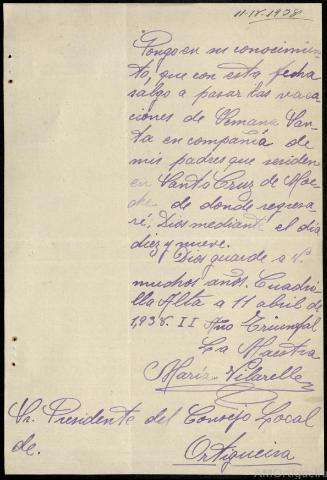 11-IV-1938
Pongo en su conocimien-
to, que con esta fecha
salgo a pasar las vaca-
ciones de Semana San-
ta en compañía de
mis padres que seriden
en Santo Cruz de Moe-
che de donde regresa-
ré, Dios mediante el día
diez y nueve.
Dios guarde a V.
muchos años. Cuadri-
lla Alta a 11 abril de
1,938. II Año Triunfal
La Maestra
María Vilarelle
Sr. Presidente del Consejo Local
de.
Ortigueira
AMOrtigueira